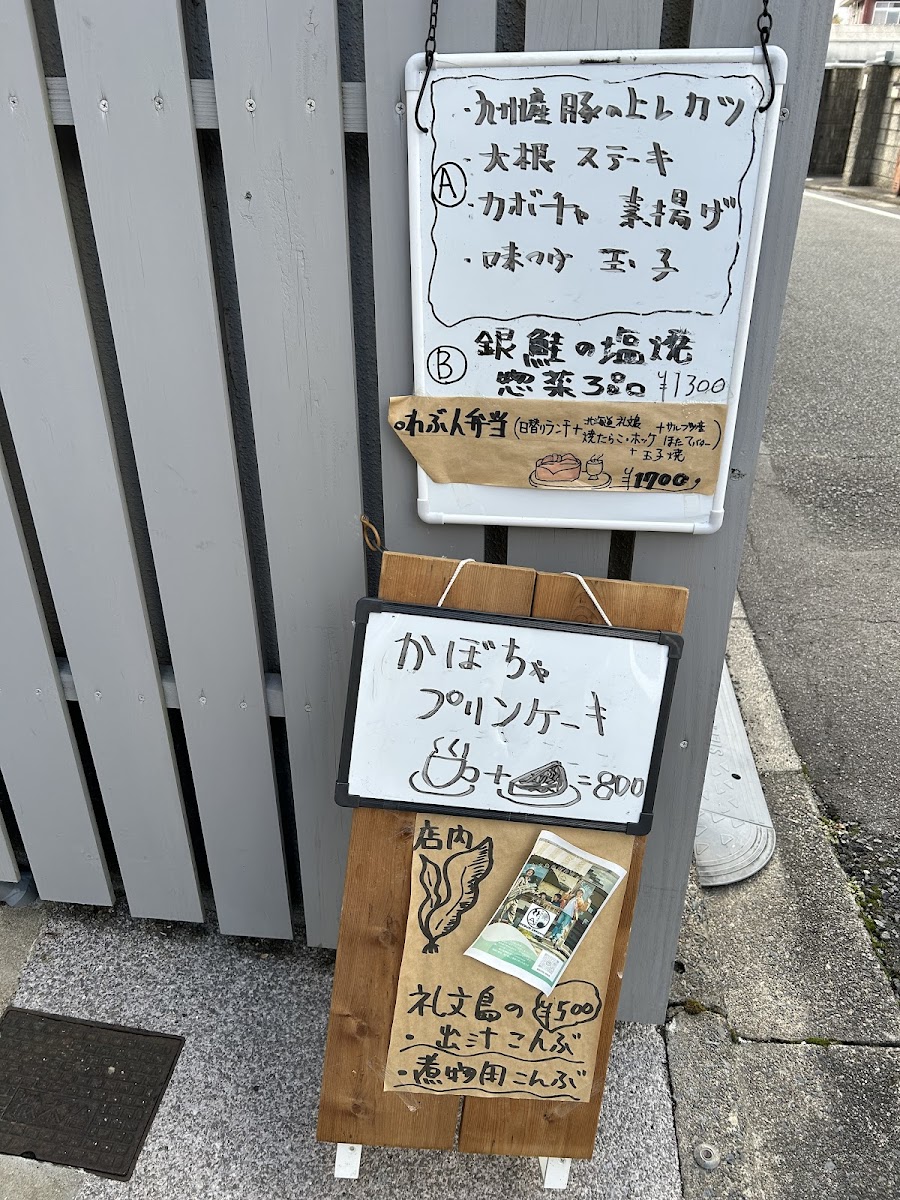 ・九州産豚の上レカツ
・大根 ステーキ
Ⓐ
・カボチャ 素揚げ
・味つけ 玉子
Ⓑ 銀鮭の塩焼
惣菜3品 ¥1300
れぶん弁当(日替りランチ+北海道礼文島焼たらこ・ホッケ+サルフツ産ほたてバター)
+玉子焼
¥1700
かぼちゃ
プリンケーキ
+ =800
店内
礼文島の ¥500
・出汁こんぶ
・煮物用こんぶ